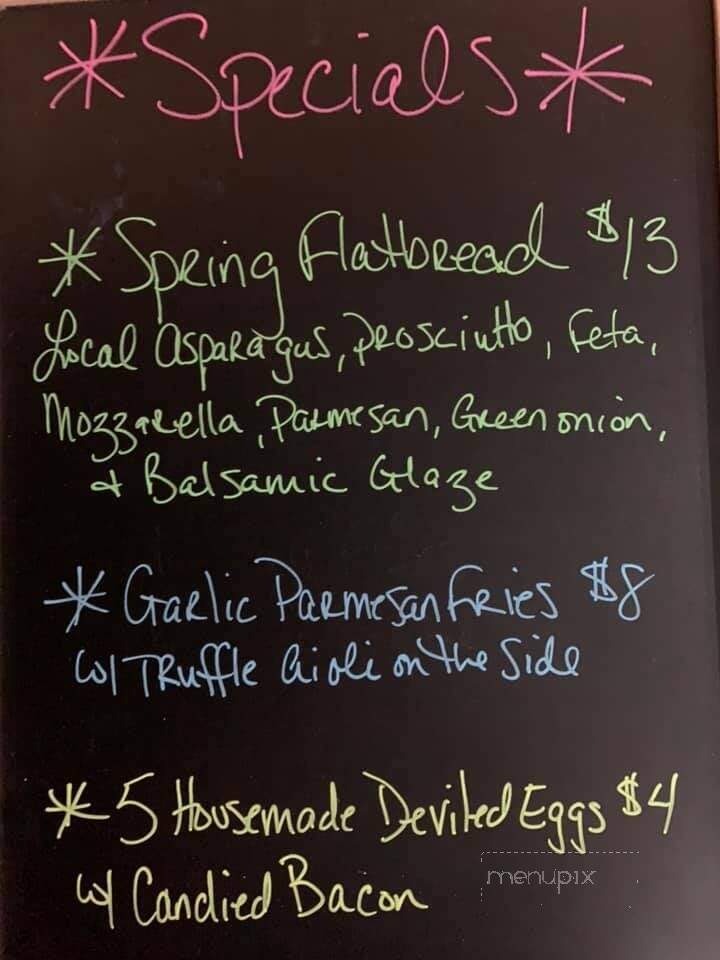 *Specials*
*Spring Flatbread $13
Local Asparagus, Prosciutto, Feta,
Mozzarella, Parmesan, Green onion,
& Balsamic Glaze
*Garlic Parmesan Fries $8
w/ Truffle Aioli on the Side
*5 Housemade Deviled Eggs $4
w/ Candied Bacon
menupix